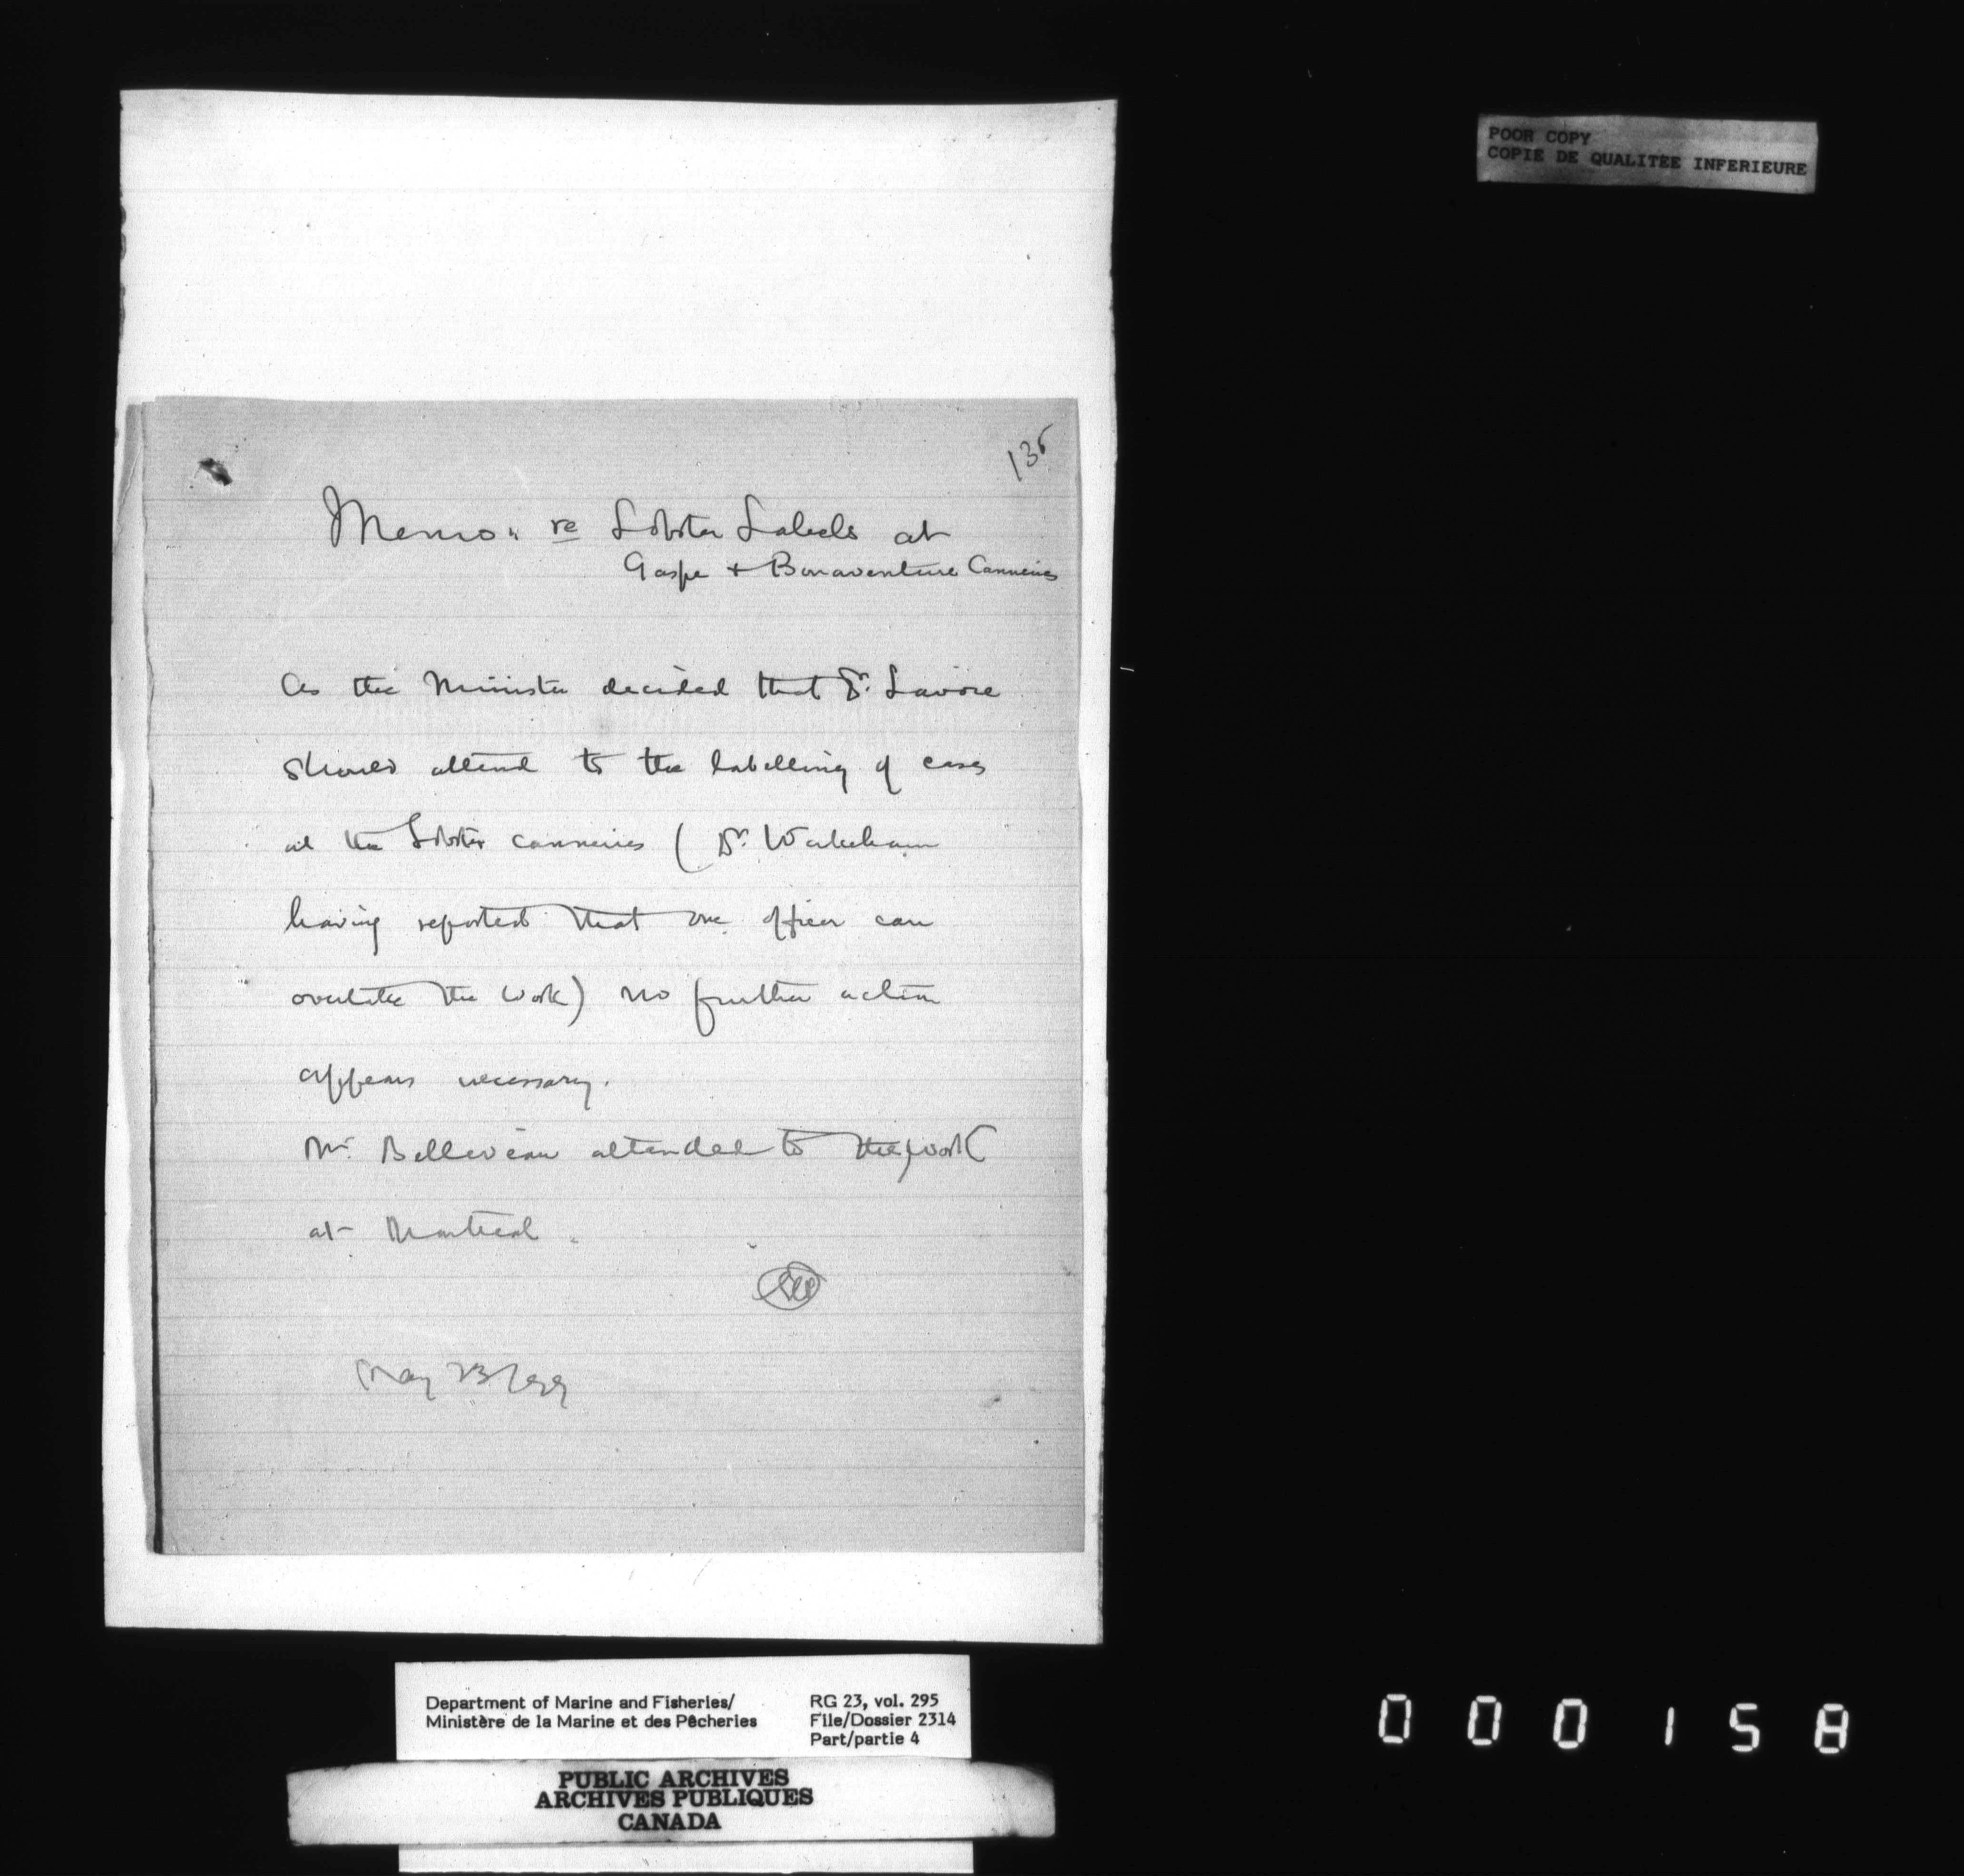 POOR COPY
COPIE DE QUALITEE INFERIEURE
135
Memo. re Lobster Labels at
Gaspe + Bonaventure Canneries
As the Minister decided that Dr. Lavoie
should attend to the labelling of cases
at the Lobster canneries ( Dr. Wakeham
having reported that one officer can
overtake the work) no further action
appears necessary.
Mr. Belliveau attended to the work
at Montreal.
May 23/99
Department of Marine and Fisheries/
Ministère de la Marine et des Pêcheries
RG 23, vol. 295
File/Dossier 2314
Part/partie 4
PUBLIC ARCHIVES
ARCHIVES PUBLIQUES
CANADA
000158